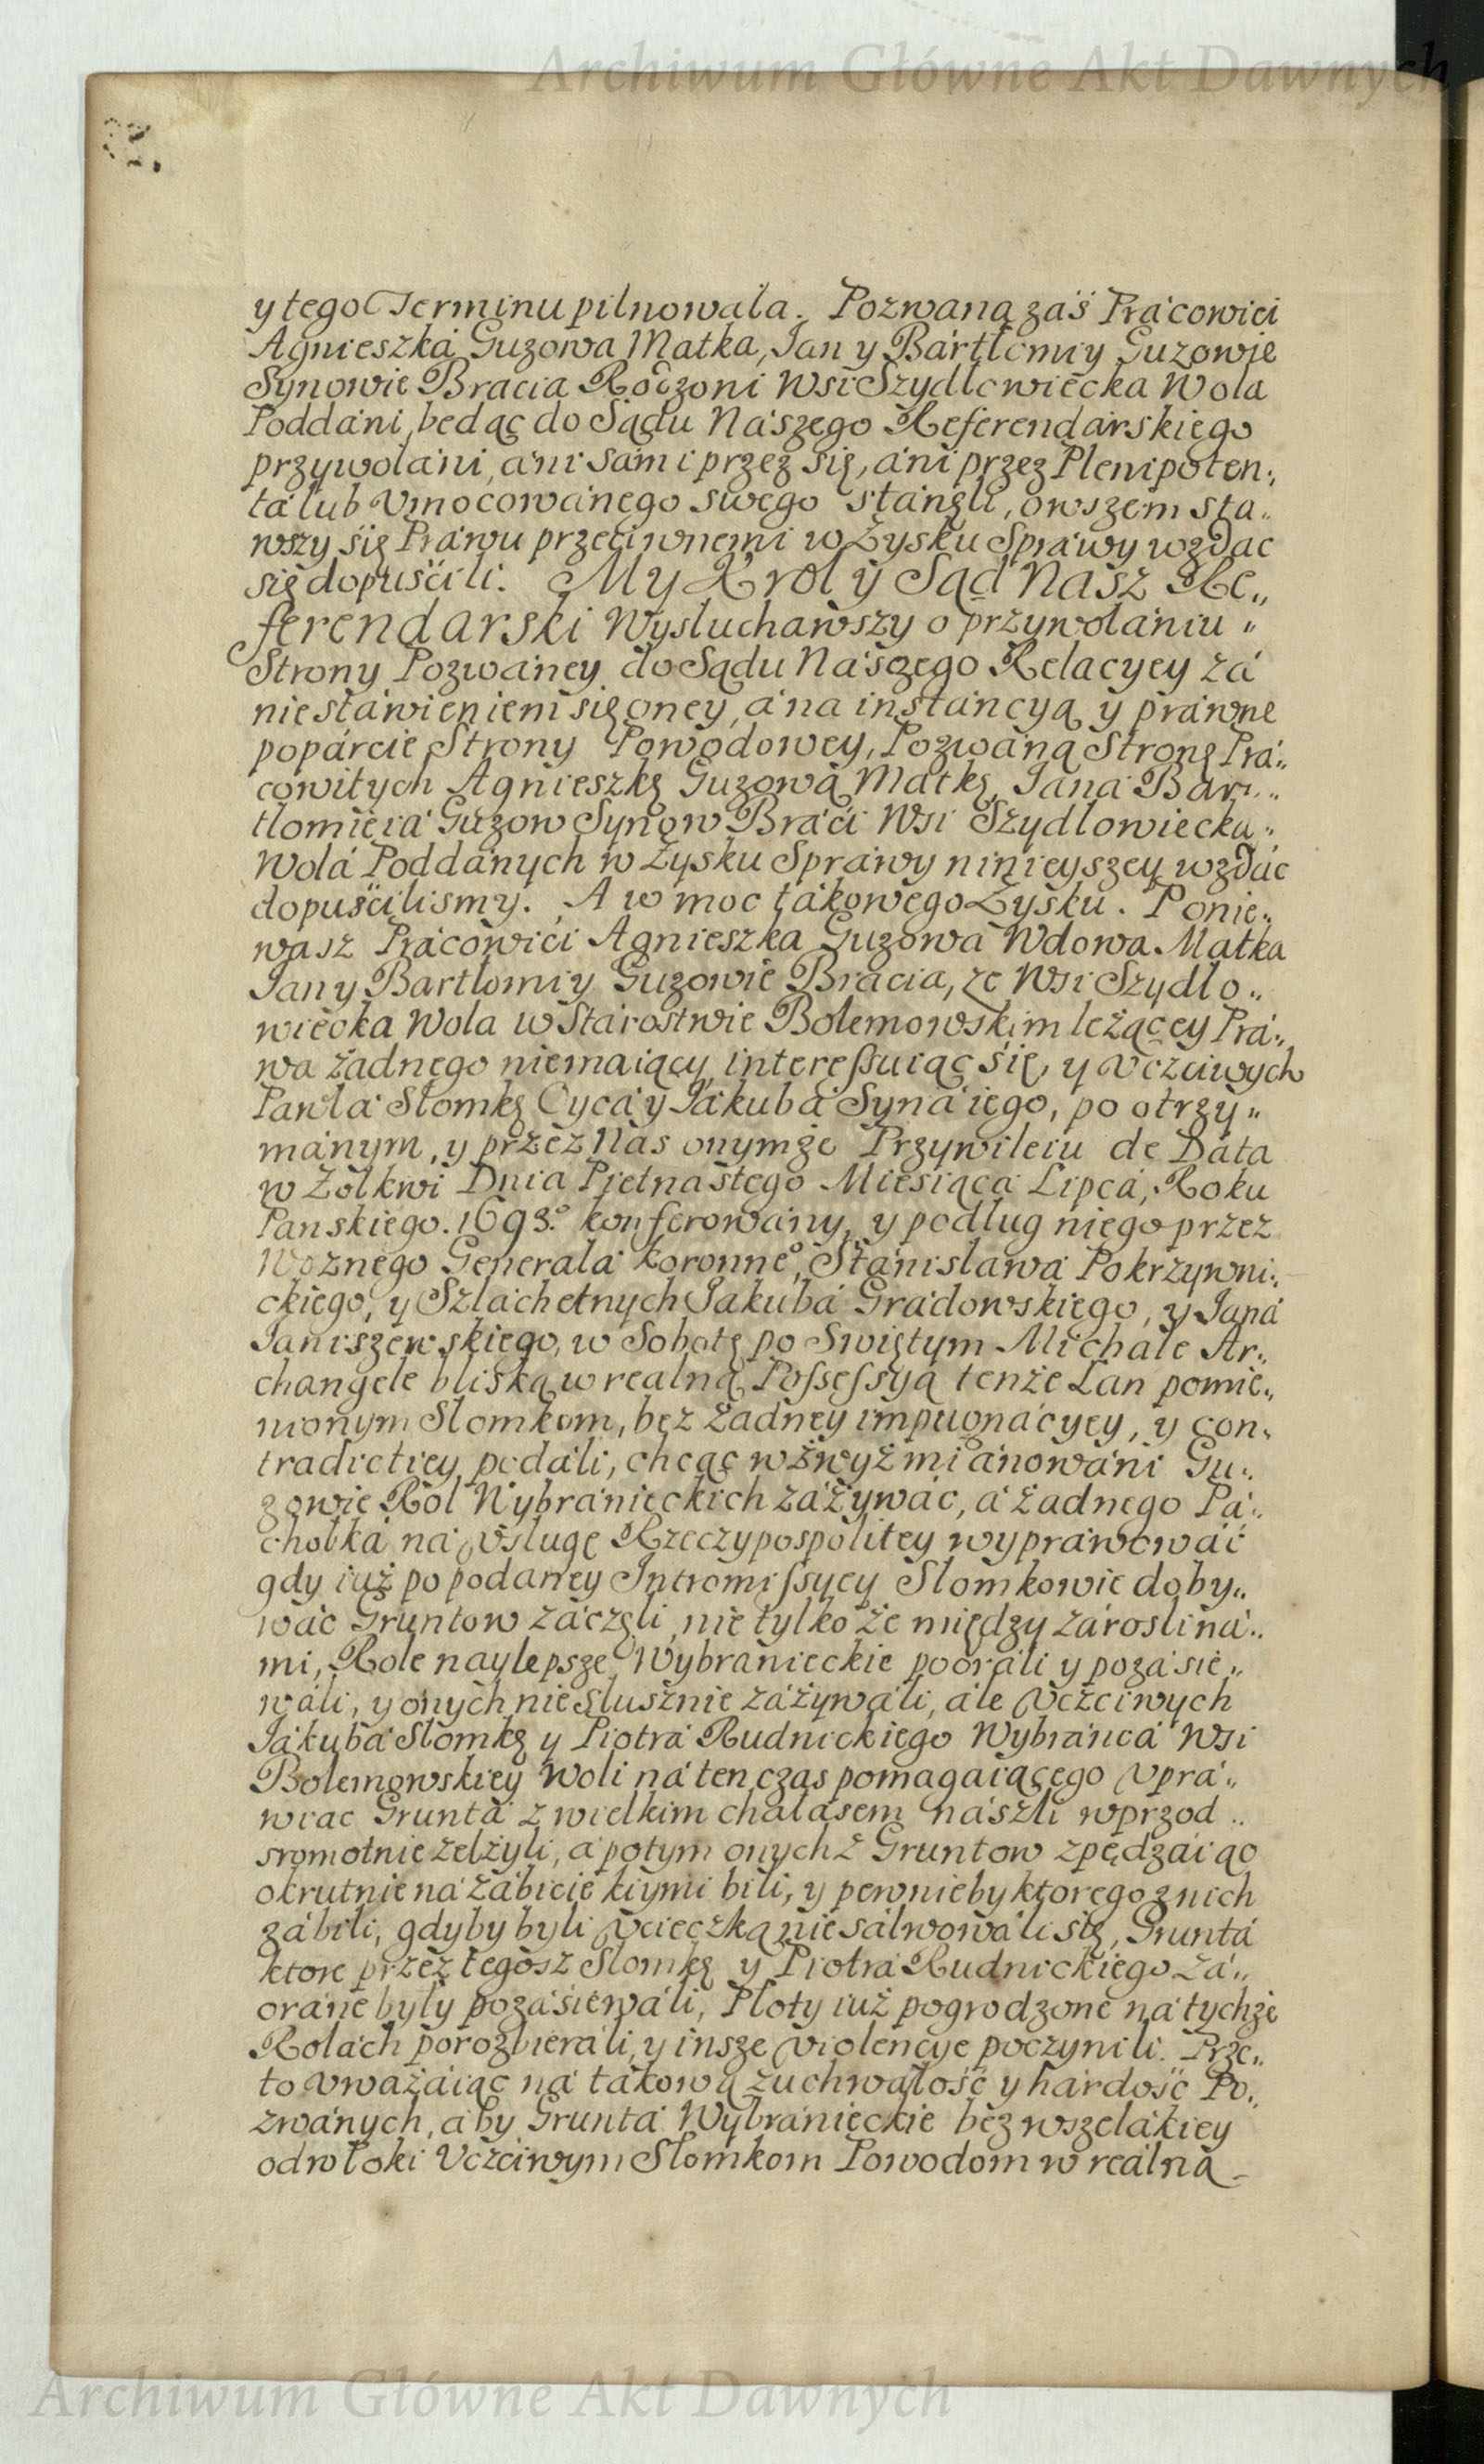 Archiwum Główne Akt Dawnych
y tego Terminu pilnowała. Pozwana zaś Prácowici
Agnieszká Guzowa Matka, Jan y Bártłomiy Guzowie
Synowie Bracia Rodzoni Wsi Szydłowiecka Wola
Poddáni, bedąc do Sądu Nászego Referendárskiego
przywoláni, áni sámi przez się, áni przez Plenipoten„
tá lub Vmocowánego swego stánęli, owszem sta„
wszy się Práwu przeciwnemi w Zysku Spráwy wzdać
się dopuścili. My Krol y Sąd Nász Re„
ferendarski Wysłuchawszy o przywołániu „
Strony Pozwáney do Sądu Nászego Relacyey zá
niestáwieniem się oney, á na instáncyą y práwne
popárcie Strony Powodowey, Pozwáną Stronę Prá„
cowitych Agnieszkę Guzową Matkę, Janá Bar„
tłomieiá Guzow Synow Bráci Wsi Szydłowiecka„
Wolá Poddánych w Zysku Spráwy ninieyszey wzdáć
dopuścilismy. A w moc tákowego Zysku. Ponie„
wasz Prácowici Agnieszka Guzowa Wdowa Matka
Jan y Bartłomiy Guzowie Bracia, ze Wsi Szydło„
wiecka Wola w Stárostwie Bolemowskim leżącey Prá„
wa żadnego niemaiący, interessuiąc się, y Vczciwych
Páwłá Słomkę Oycá y Jákubá Syná iego, po otrzy„
mánym, y przez Nas onymże Przywileiu de Dáta
w Zołkwi Dniá Piętnastego Miesiąca Lipcá, Roku
Panskiego. 1693.º konferowány, y podług niego przez
Woznego Generałá koronneº, Stánisláwá Pokrzywni„
ckiego, y Szláchetnych Jakubá Grádowskiego, y Janá
Janiszewskiego, w Sobotę po Swiętym Micháłe Ar„
changele bliską w realną Possessyą tenże Łan pomie„
nionym Słomkom, bez żadney impugnácyey, y con„
tradictiey podáli, chcąc wzwyż miánowáni Gu„
zowie Rol Wybránieckich záżywáć, á żadnego Pá„
chołká ná Vsługę Rzeczypospolitey wypráwowáć
gdy iuż po podaney Intromissyey Słomkowie doby„
wáć Gruntow záczęli, nie tylko że między zárosliná„
mi, Role naylepsze Wybranieckie pooráli y pozásie„
wáli, y onych niesłusznie záżywáli, ále Vczciwych
Jákubá Słomkę y Piotrá Rudnickiego Wybráncá Wsi
Bolemowskiey Woli ná ten czas pomagaiącego Vprá„
wiac Gruntá z wielkim chałásem nászli wprzod „
sromotnie zelżyli, á potym onych z Gruntow zpędzáiąc
okrutnie ná zábicie kiymi bili, y pewnieby ktorego z nich
zábili, gdyby byli Vcieczką nie sálwowáli się, Gruntá
ktore przez tegosz Słomkę y Piotrá Rudnickiego zá„
oráne były pozásiewáli, Płoty iuż pogrodzone ná tychże
Rolách porozbieráli, y insze violencye poczynili. Prze„
to Vważáiąc ná tákową zuchwáłość y hárdość Po„
zwánych, áby Gruntá Wybránieckie bez wszelákiey
odwłoki Vczciwym Słomkom Powodom w reálną
Archiwum Główne Akt Dawnych